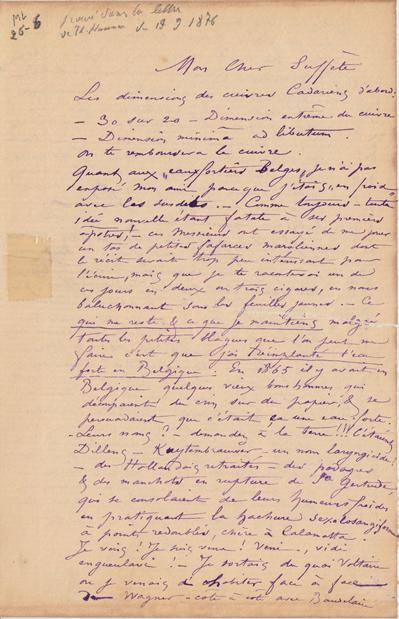 ML
26-6
trouvé dans la lettre
de Th. Hannon d. 13 9 1876
Mon Cher Suffète
Les dimensions des cuivres Cadariens d'abord:
- 30 sur 20 - Dimension extrême du cuivre
- Dimension minima ad libitum.
On te remboursera le cuivre.
Quant aux "eauxfortiers Belges" je n'ai pas
exposé mon ami parce que j'étais en froid
avec les susdits. - Comme toujours - toute
idée nouvelle étant fatale à ses premiers
apôtres! - ces Messieurs ont essayé de me jouer
un tas de petites farces marolliennes dont
le récit serait trop peu intéressant pour
l'écrire, mais que je te raconterai un de
ces jours en deux ou trois cigares, en nous
baluchonnant sous les feuilles jaunes. - Ce
qui me reste & ce que je maintiens malgré
toutes les petites blagues que l'on peut me
faire c'est que j'ai réimplanté l'eau
forte en Belgique. - En 1865 il y avait en
Belgique quelques vieux bonshommes qui
découpaient du crin sur du papier, & se
persuadaient que c'était ça une eau-forte.
- Leurs noms? - demandez à la terre!!! C'étaient
Dillens - Kuytembrauwer, un nom laryngicide!
- des Hollandais retraités - des podagres
& des manchots en rupture de Ste Gertrude,
qui se consolaient de leurs humeurs froides
en pratiquant la hachure
à points redoublés, chère à Calamatta.
Je vois! Je suis venu! Veni -, vidi
engueulavi! - Je sortais du quai Voltaire
où je venais d'habiter face à face
Wagner - côte à côte avec Baudelaire